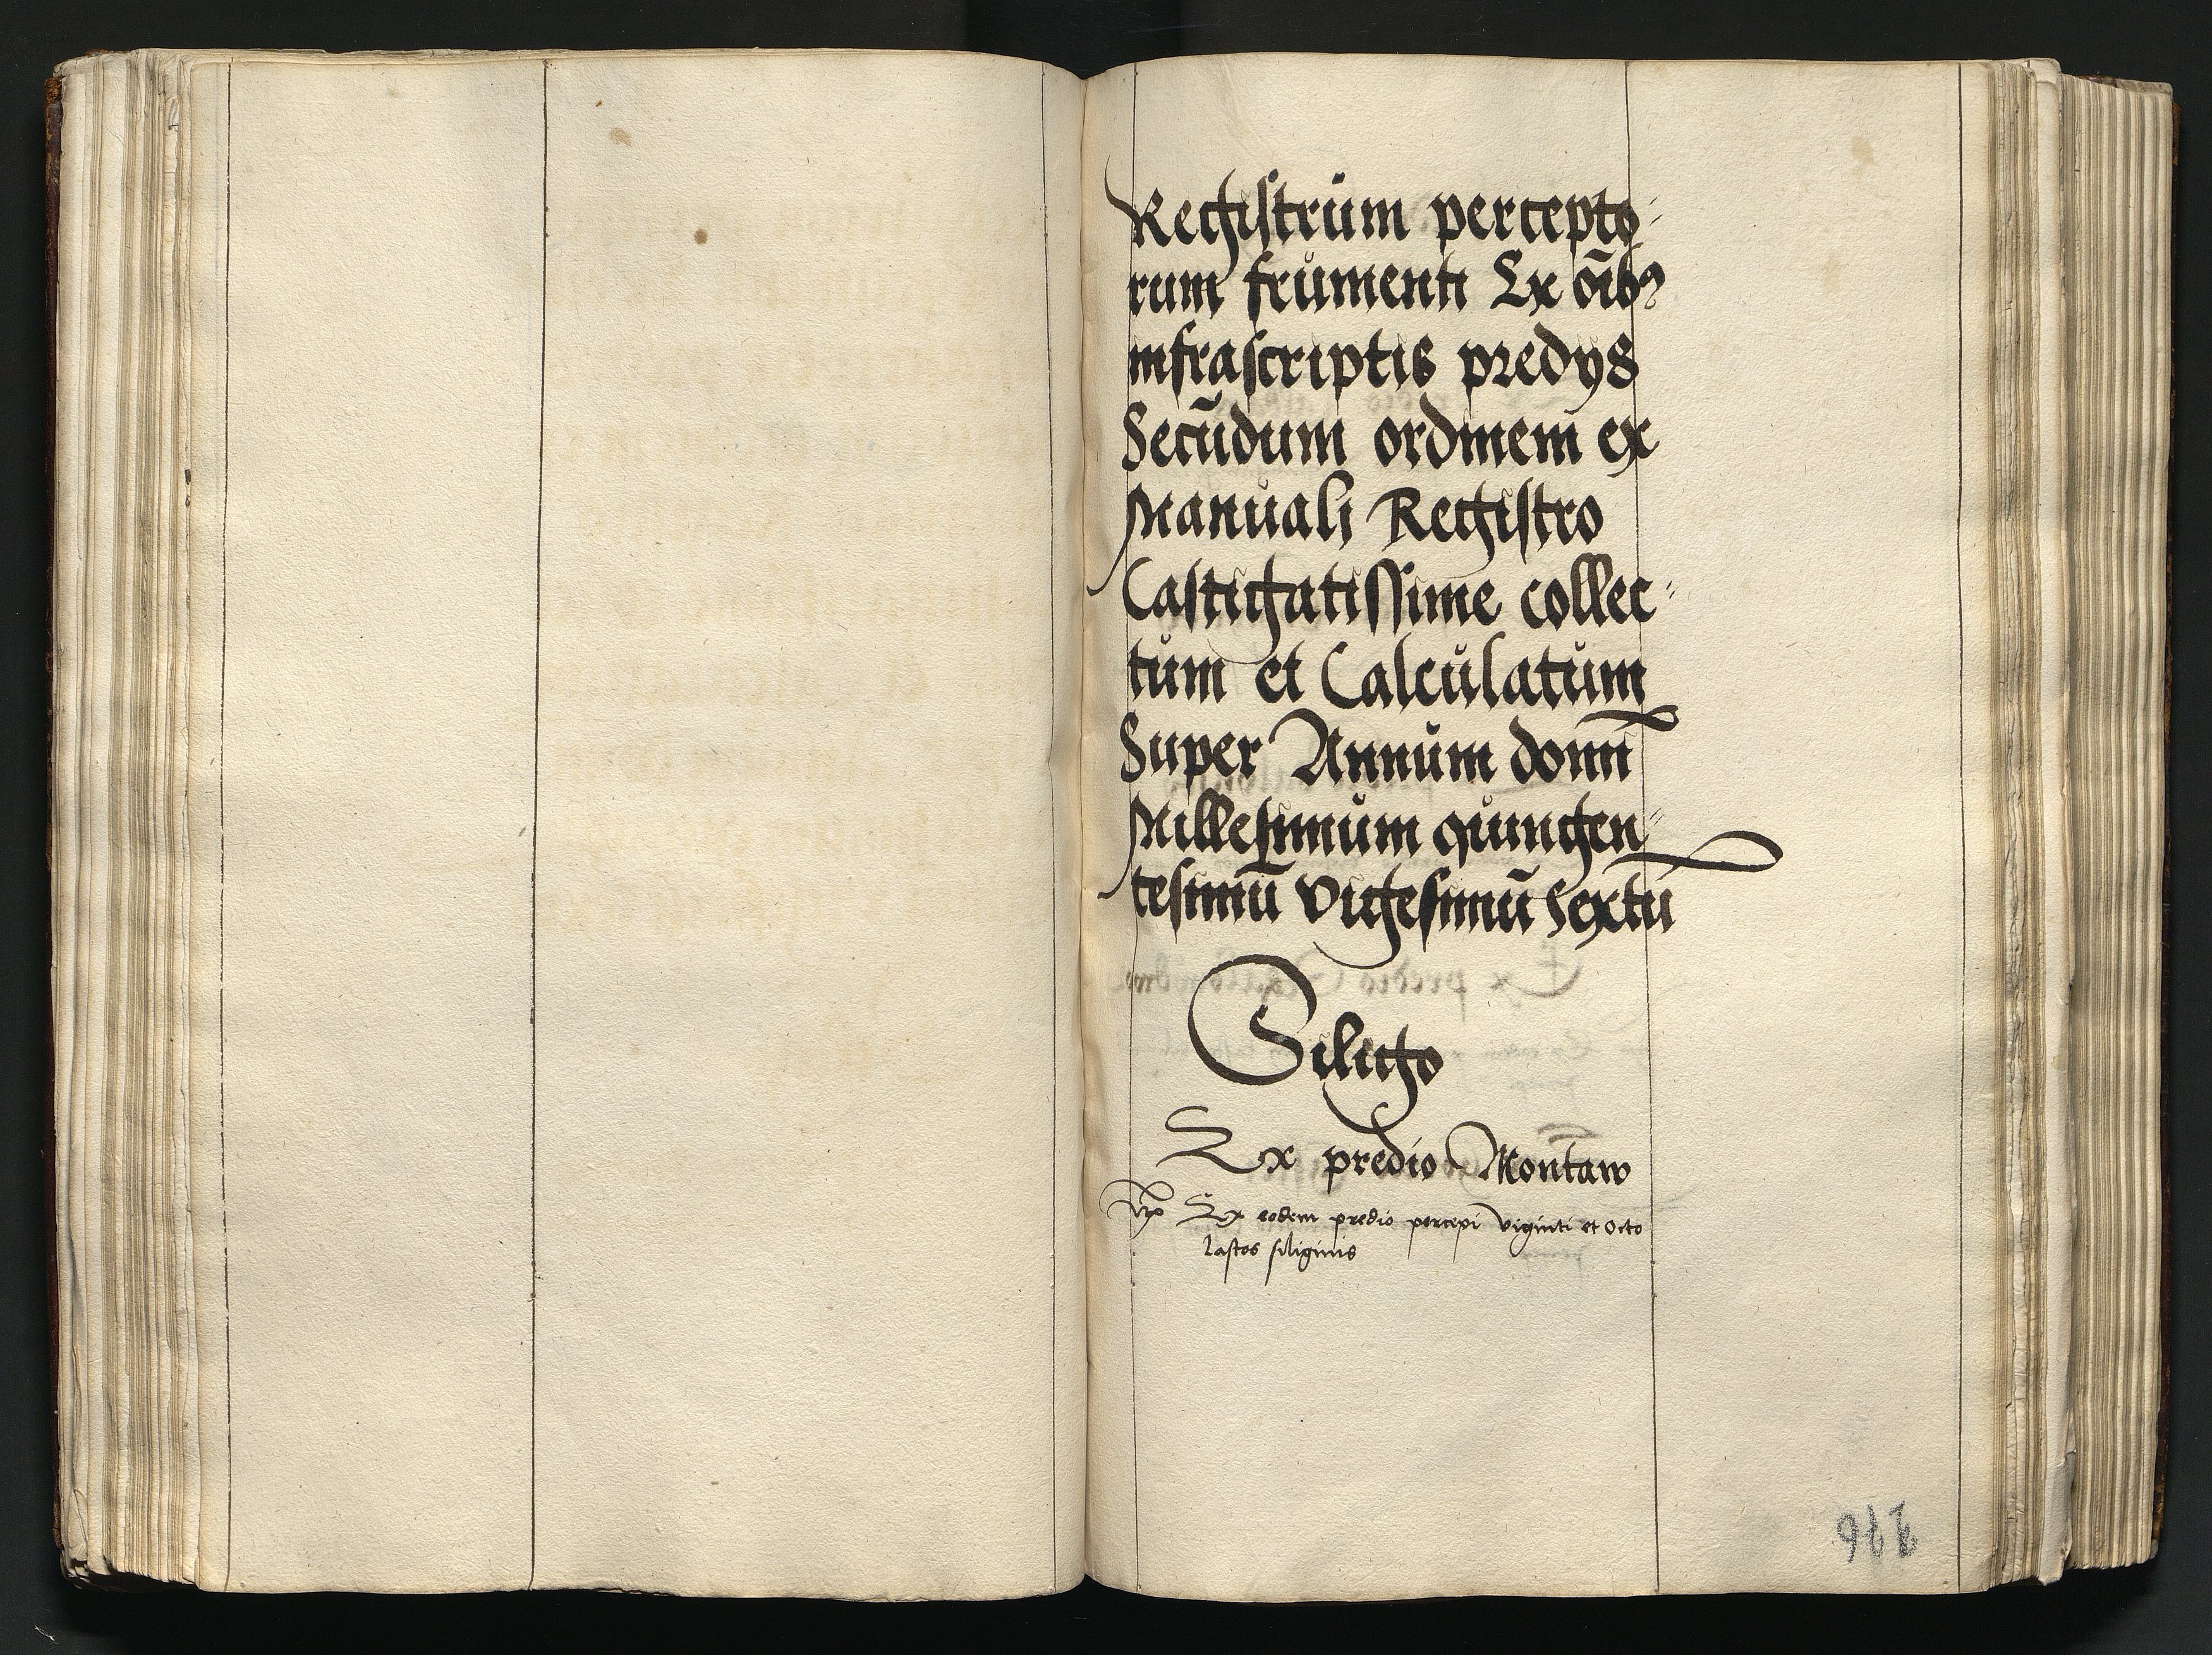 Registrum percepto⸗
rum frumenti Ex oībꝫ
infrascriptis predijs
Secūdum ordinem ex
Manuali Registro
Castigatissime collec⸗
tum et Calculatum
Super Annum domī
Millesimum quingen⸗
tesimū vigesimū sextū
Siligo
Ex predio Montaw
Ex eodem predio percepi viginti et octo
lastos siliginis